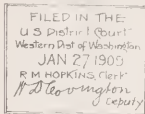 FILED IN THE
U.S District Court
Western Dist of Washington
JAN 27 1909
R M HOPKINS, Clerk
W D Covington
Deputy